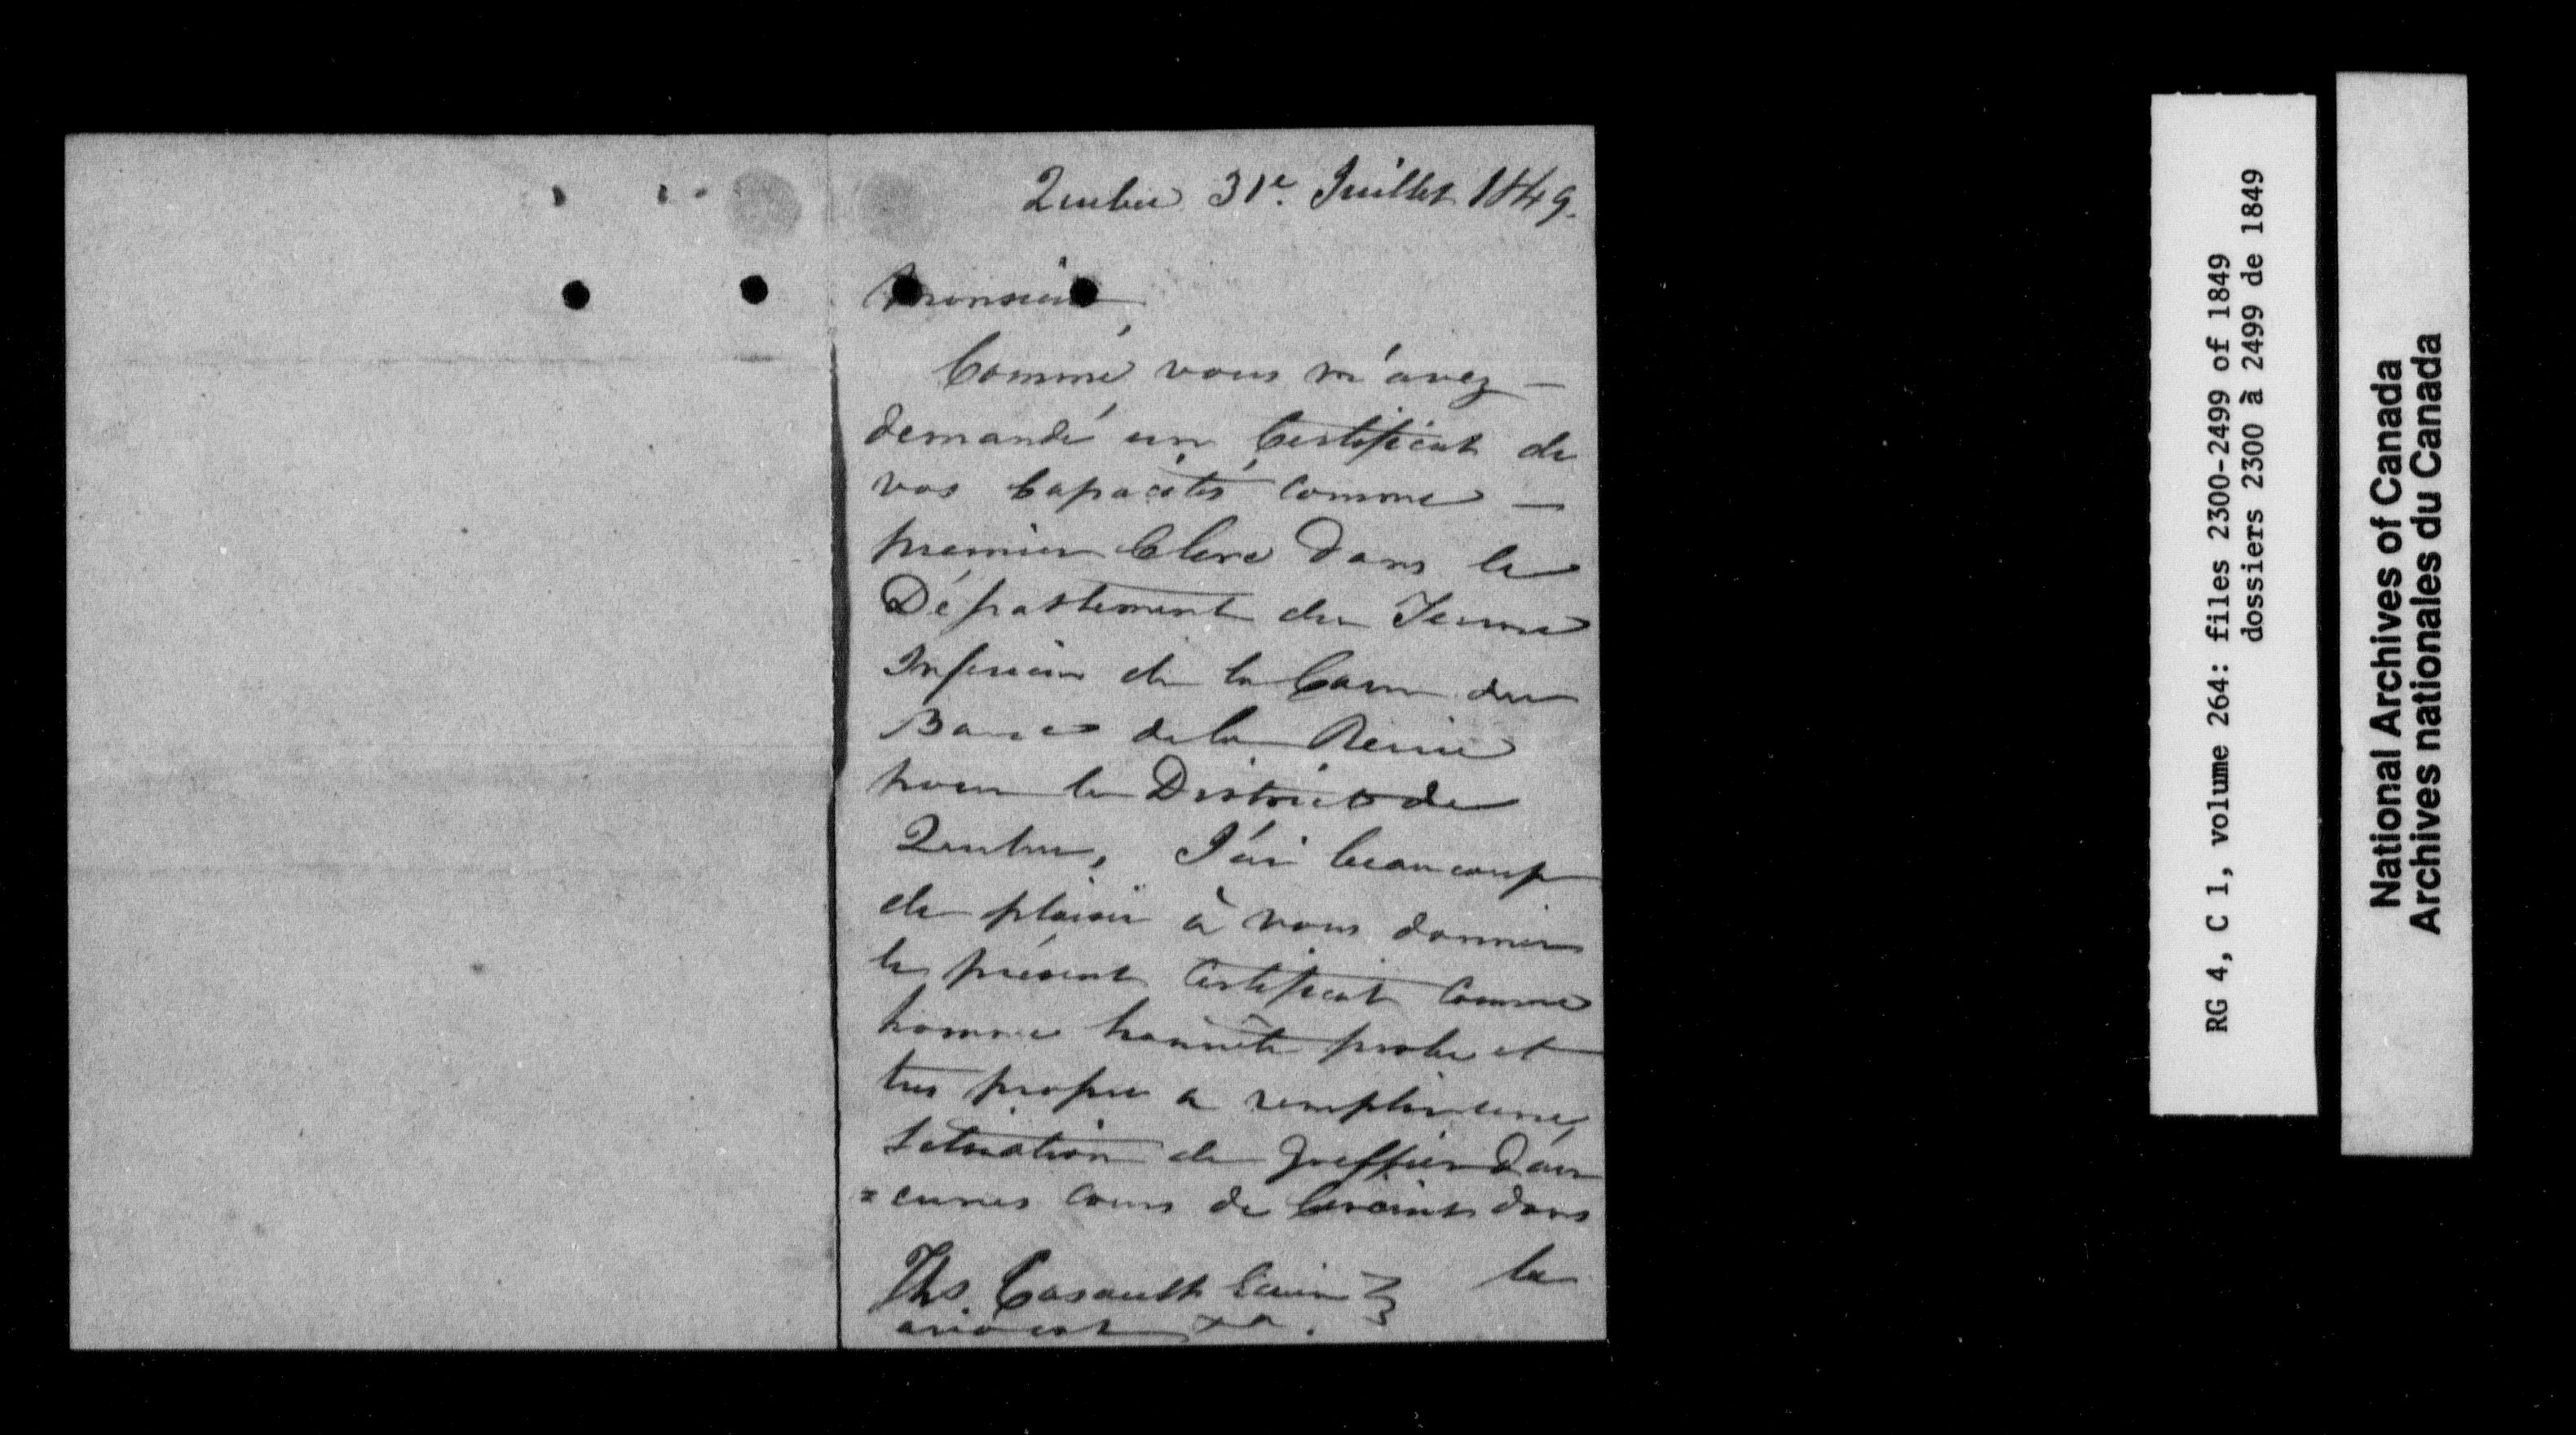 Quebec 31e. Juillet 1849.
Monsieur,
Comme vous m'avez –
demandé un Certificat de
vos Capacités comme –
premier Clerc dans le
Département du Terme
Inferieur de la Cour du
Banc de la Reine
pour le District de
Quebec, J'ai beaucoup
de plaisir à vous donner
le présent Certificat Comme
homme honnête probe et
tres propre a remplir une
situation de Greffier d'au
=cunes Cours de Circuit dans
la
Ths. Casault Ecuier
avocat &a.
RG 4, C 1, volume 264: files 2300-2499 of 1849
dossiers 2300 à 2499 de 1849
National Archives of Canada
Archives nationales du Canada